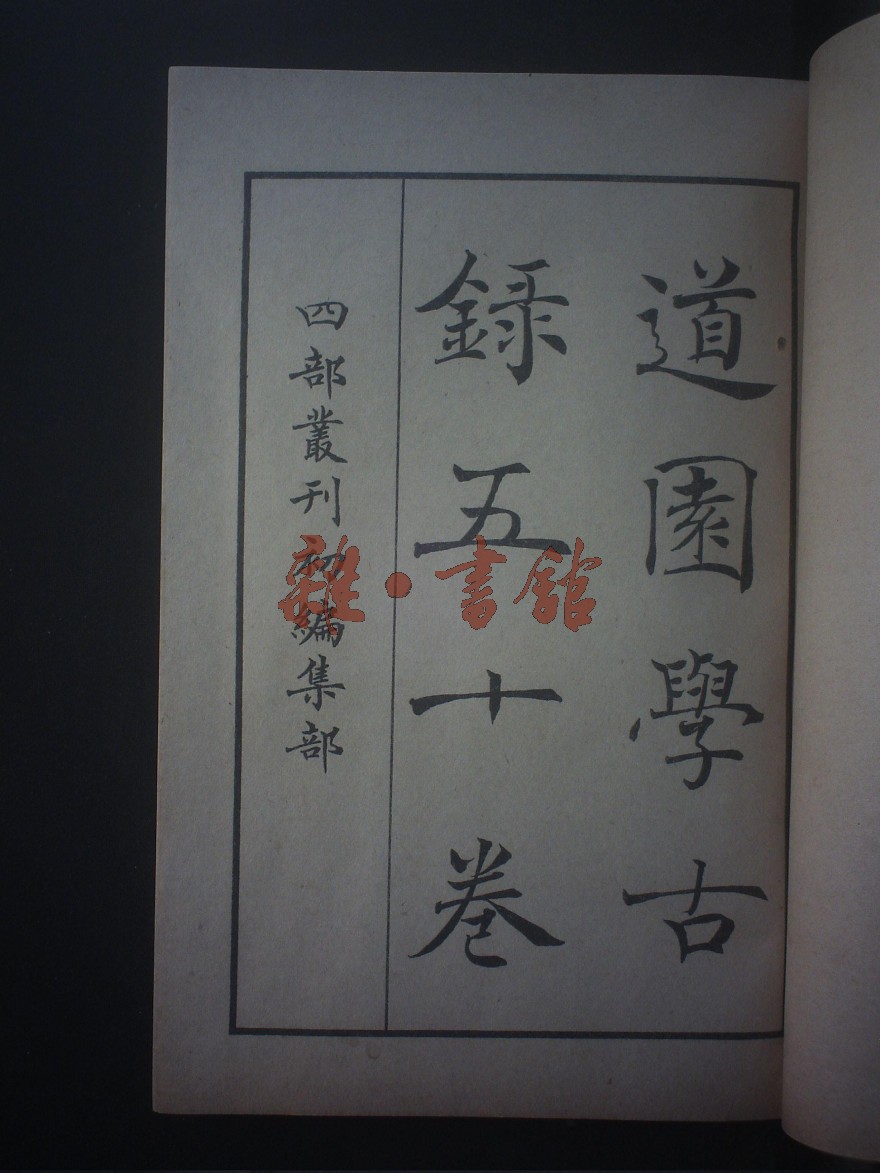 道園學古
録五十卷
四部叢刊初編集部
雜·書館